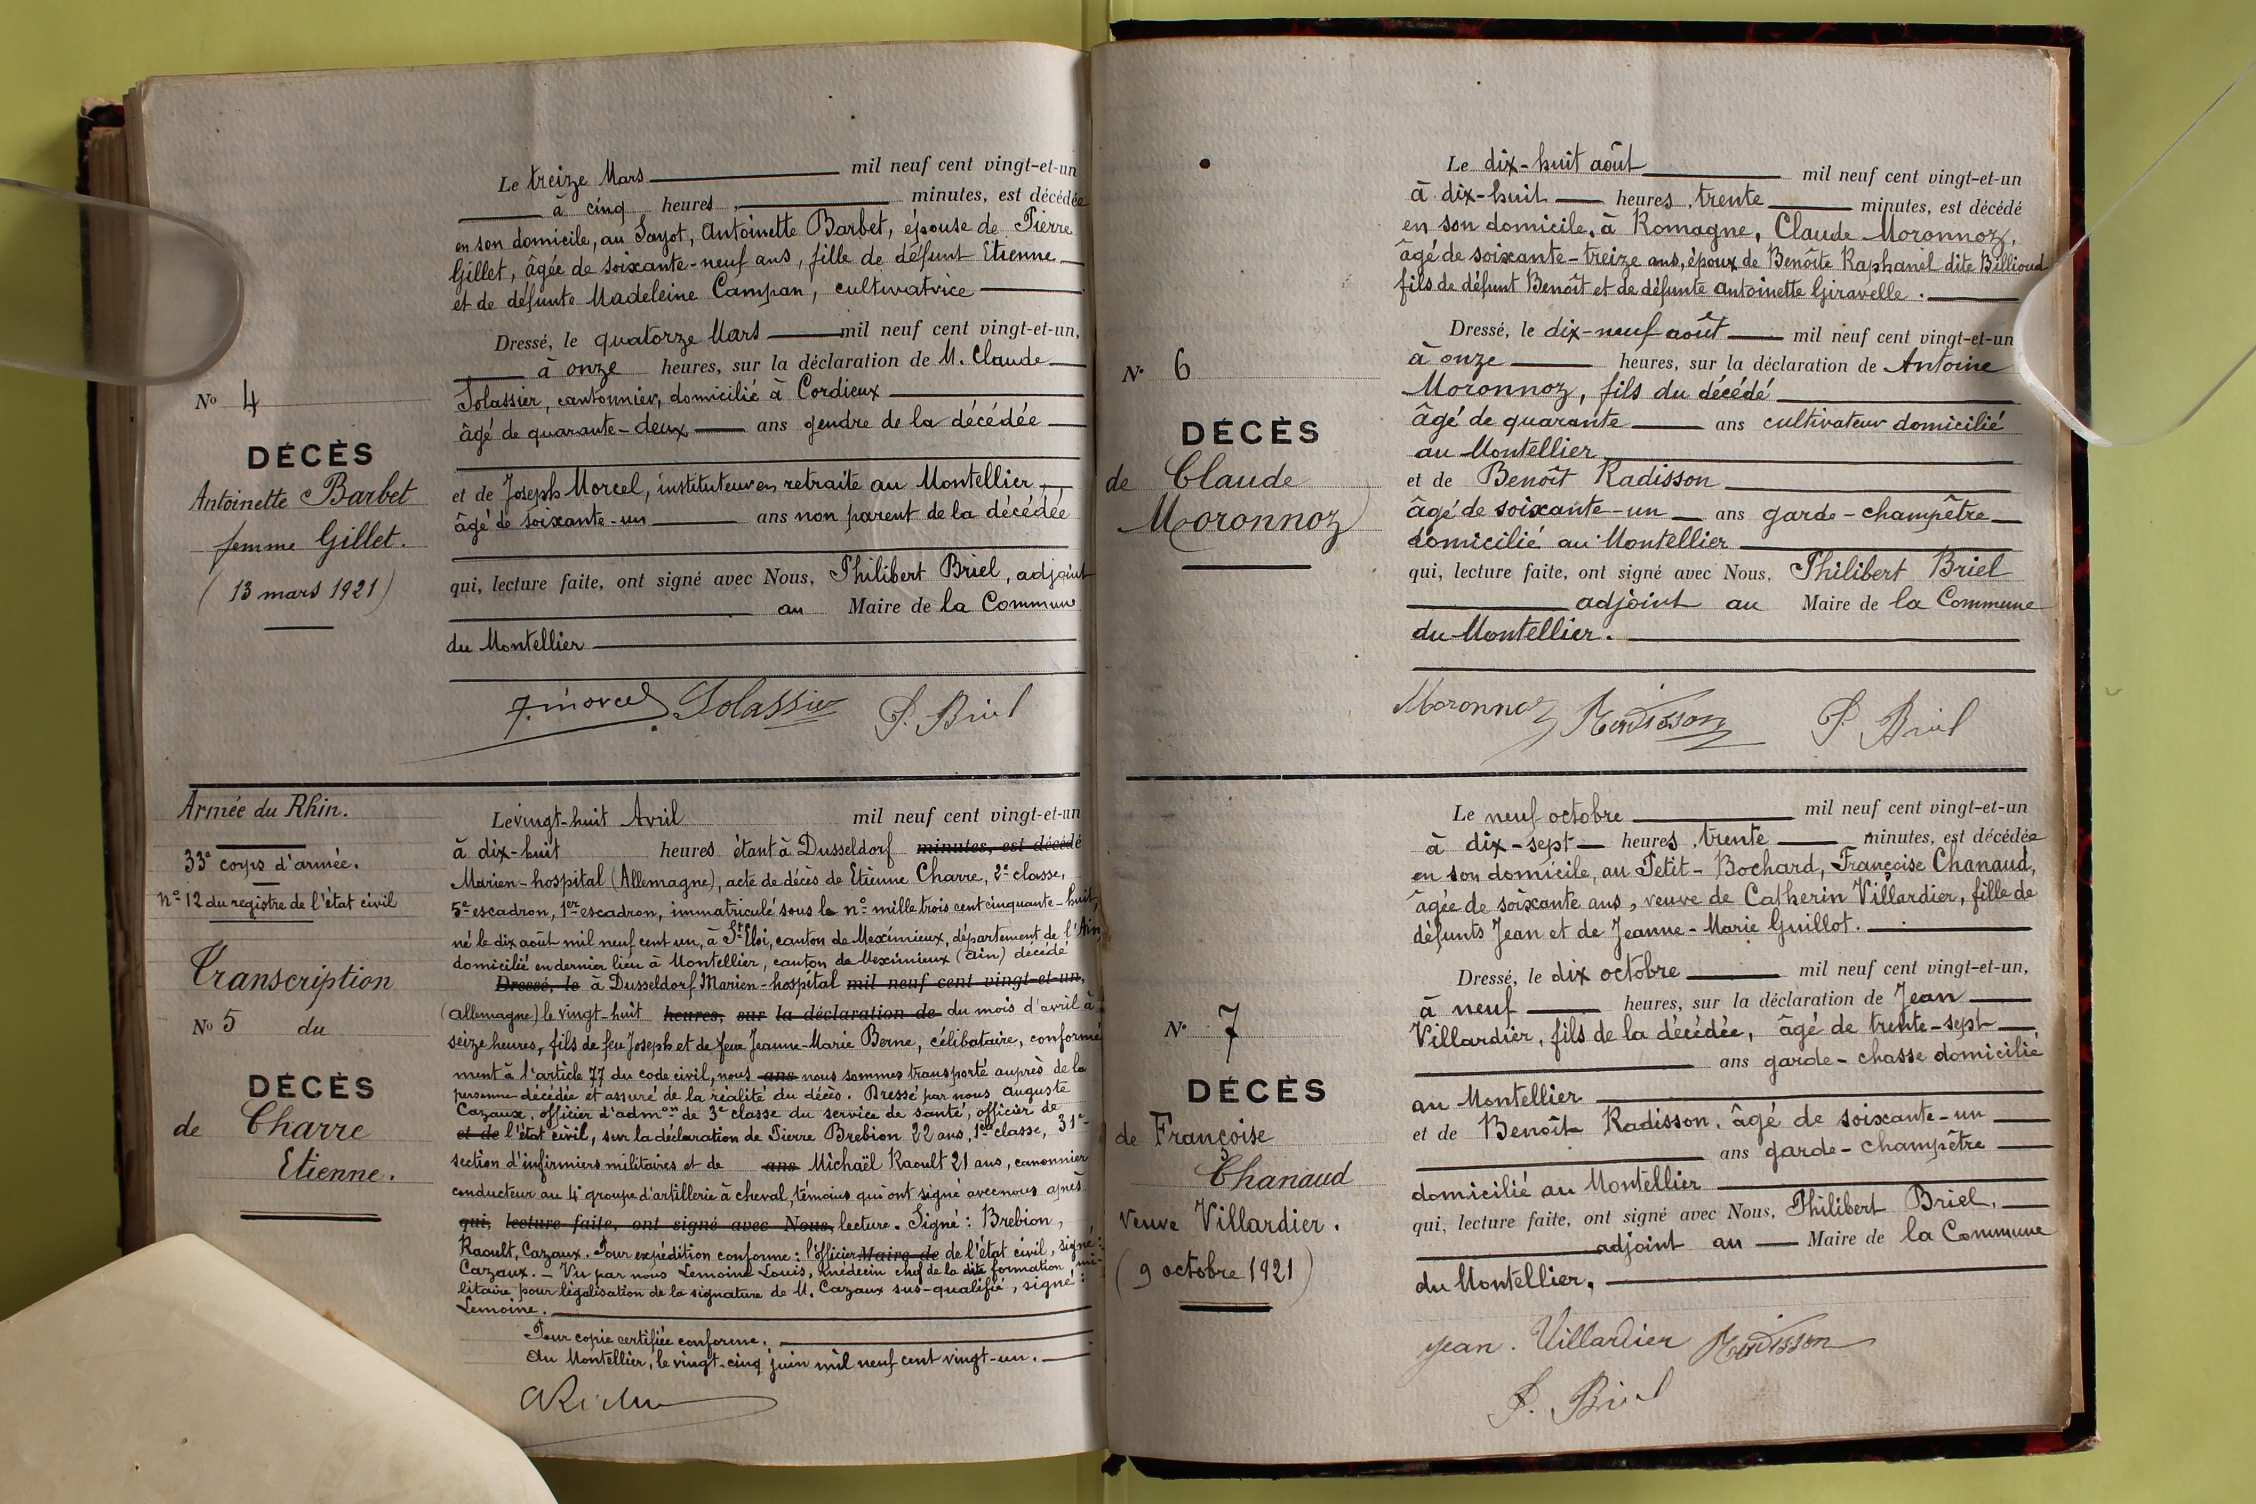 Le treize Mars mil neuf cent vingt-et-un
à cinq heures, minutes, est décédée
en son domicile, au Sayot, Antoinette Barbet, épouse de Pierre
Gillet, âgée de soixante-neuf ans, fille de défunt Etienne
et de défunte Madeleine Campan, cultivatrice
Dressé, le quatorze Mars mil neuf cent vingt-et-un,
à onze heures, sur la déclaration de M. Claude
Solassier, cantonnier, domicilié à Cordieux
âgé de quarante-deux ans gendre de la décédée
et de Joseph Morcel, instituteur en retraite au Montellier
âgé de soixante-un ans non parent de la décédée
qui, lecture faite, ont signé avec Nous, Philibert Briel, adjoint
au Maire de la Commune
du Montellier
J. Morcel Solassier P. Briel
No 4
DÉCÈS
Antoinette Barbet
femme Gillet.
(13 mars 1921)
Armée du Rhin.
33e corps d'armée.
No 12 du registre de l'état civil
Transcription
No 5 du
DÉCÈS
de Charre
Etienne.
Le vingt-huit Avril mil neuf cent vingt-et-un
à dix-huit heures étant à Dusseldorf minutes, est décédé
Marien-hospital (Allemagne), acte de décès de Etienne Charre, 2e classe,
5e escadron, 1er escadron, immatriculé sous le no mille trois cent cinquante-huit,
né le dix août mil neuf cent un, à Ste Eloi, canton de Meximieux, département de l'Ain,
domicilié en dernier lieu à Montellier, canton de Meximieux (Ain) décédé
Dressé, le à Dusseldorf Marien-hospital mil neuf cent vingt-et-un,
(Allemagne) le vingt-huit heures, sur la déclaration de du mois d'avril à
seize heures, fils de feu Joseph et de feue Jeanne-Marie Berne, célibataire, conformé
ment à l'article 77 du code civil, nous ans nous sommes transporté auprès de la
personne décédée et assuré de la réalité du décès. Dressé par nous Auguste
Cazaux, officier d'admon de 3e classe du service de santé, officier de
et de l'état civil, sur la déclaration de Pierre Brebion 22 ans, 1ere classe, 31e
section d'infirmiers militaires et de ans Michaël Raoult 21 ans, canonnier
conducteur au 4e groupe d'artillerie à cheval, témoins qui ont signé avec nous après
qui, lecture faite, ont signé avec Nous, lecture. Signé : Brebion,
Raoult, Cazaux. Pour expédition conforme : l'officier Maire de de l'état civil, signé :
Cazaux. – Vu par nous Lemoine Louis, médecin chef de la dite formation mi-
litaire pour légalisation de la signature de M. Cazaux sus-qualifié, signé :
Lemoine.
Pour copie certifiée conforme.
Au Montellier, le vingt-cinq juin mil neuf cent vingt-un.
Le dix-huit août mil neuf cent vingt-et-un
à dix-huit heures, trente minutes, est décédé
en son domicile, à Romagne, Claude Moronnoz,
âgé de soixante-treize ans, époux de Benoîte Raphanel dite Billioud
fils de défunt Benoît et de défunte Antoinette Giravelle.
Dressé, le dix-neuf août mil neuf cent vingt-et-un
à onze heures, sur la déclaration de Antoine
Moronnoz, fils du décédé
âgé de quarante ans cultivateur domicilié
au Montellier
et de Benoît Radisson
âgé de soixante-un ans garde-champêtre
domicilié au Montellier
qui, lecture faite, ont signé avec Nous, Philibert Briel
adjoint au Maire de la Commune
du Montellier.
Moronnoz Radisson P. Briel
No 6
DÉCÈS
de Claude
Moronnoz
Le neuf octobre mil neuf cent vingt-et-un
à dix-sept heures, trente minutes, est décédée
en son domicile, au Petit-Bochard, Françoise Chanaud,
âgée de soixante ans, veuve de Catherin Villardier, fille de
défunts Jean et de Jeanne-Marie Guillot.
Dressé, le dix octobre mil neuf cent vingt-et-un,
à neuf heures, sur la déclaration de Jean
Villardier, fils de la décédée, âgé de trente-sept
ans garde-chasse domicilié
au Montellier
et de Benoît Radisson, âgé de soixante-un
ans garde-champêtre
domicilié au Montellier
qui, lecture faite, ont signé avec Nous, Philibert Briel,
adjoint au Maire de la Commune
du Montellier.
Jean. Villardier Radisson
P. Briel
No 7
DÉCÈS
de Françoise
Chanaud
veuve Villardier.
(9 octobre 1921)